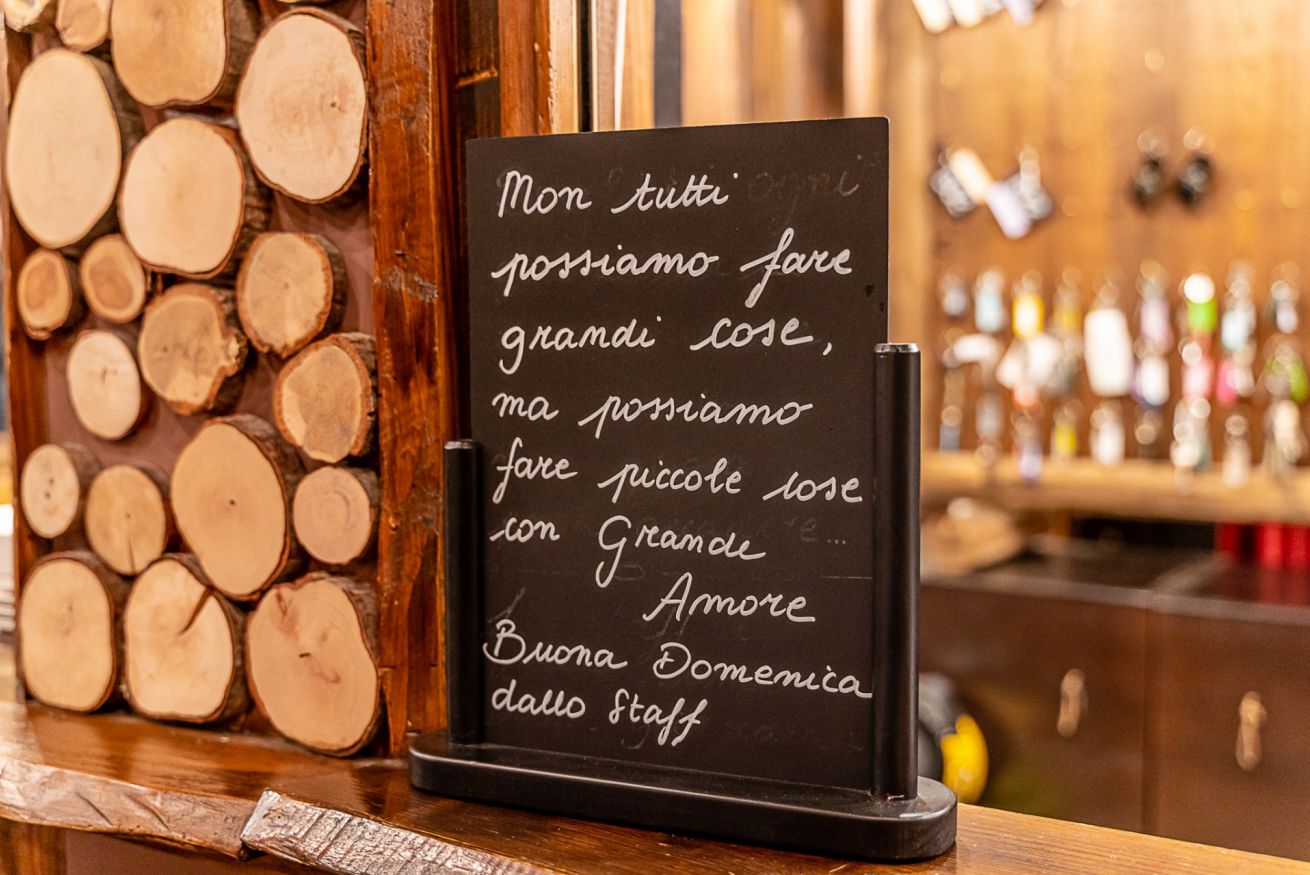 Non tutti
possiamo fare
grandi cose,
ma possiamo
fare piccole cose
con Grande
Amore
Buona Domenica
dallo Staff